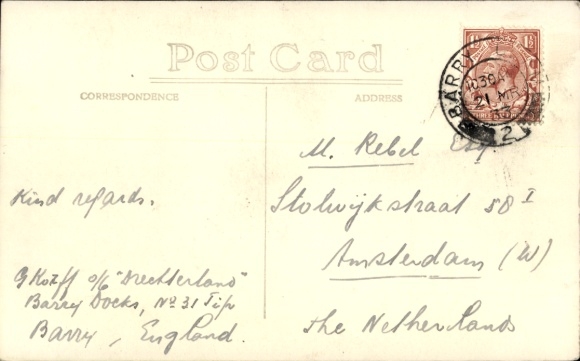 Post Card
CORRESPONDENCE
ADDRESS
BARRY
1030A
21 MR
2
M. Rebel Esq
Stolwijkstraat 58 I
Amsterdam (W)
The Netherlands
Kind regards.
o/b "Drechterland"
Barry Docks, No 31 Tip
Barry, England.